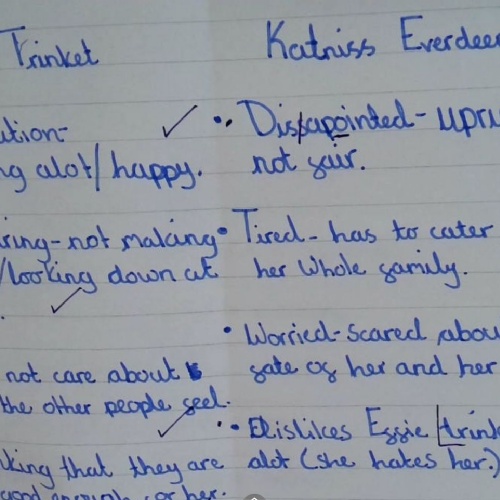 Trinket
ution-
ng alot/ happy.
ring-not making
/looking down at
not care about
the other people feel.
king that they are
good enough for her.
Katniss Everdeen
Disapointed- upru
not fair.
Tired- has to cater
her whole family.
Worried-scared abou
fate of her and her
Dislikes Effie trink
alot (she hates her.)